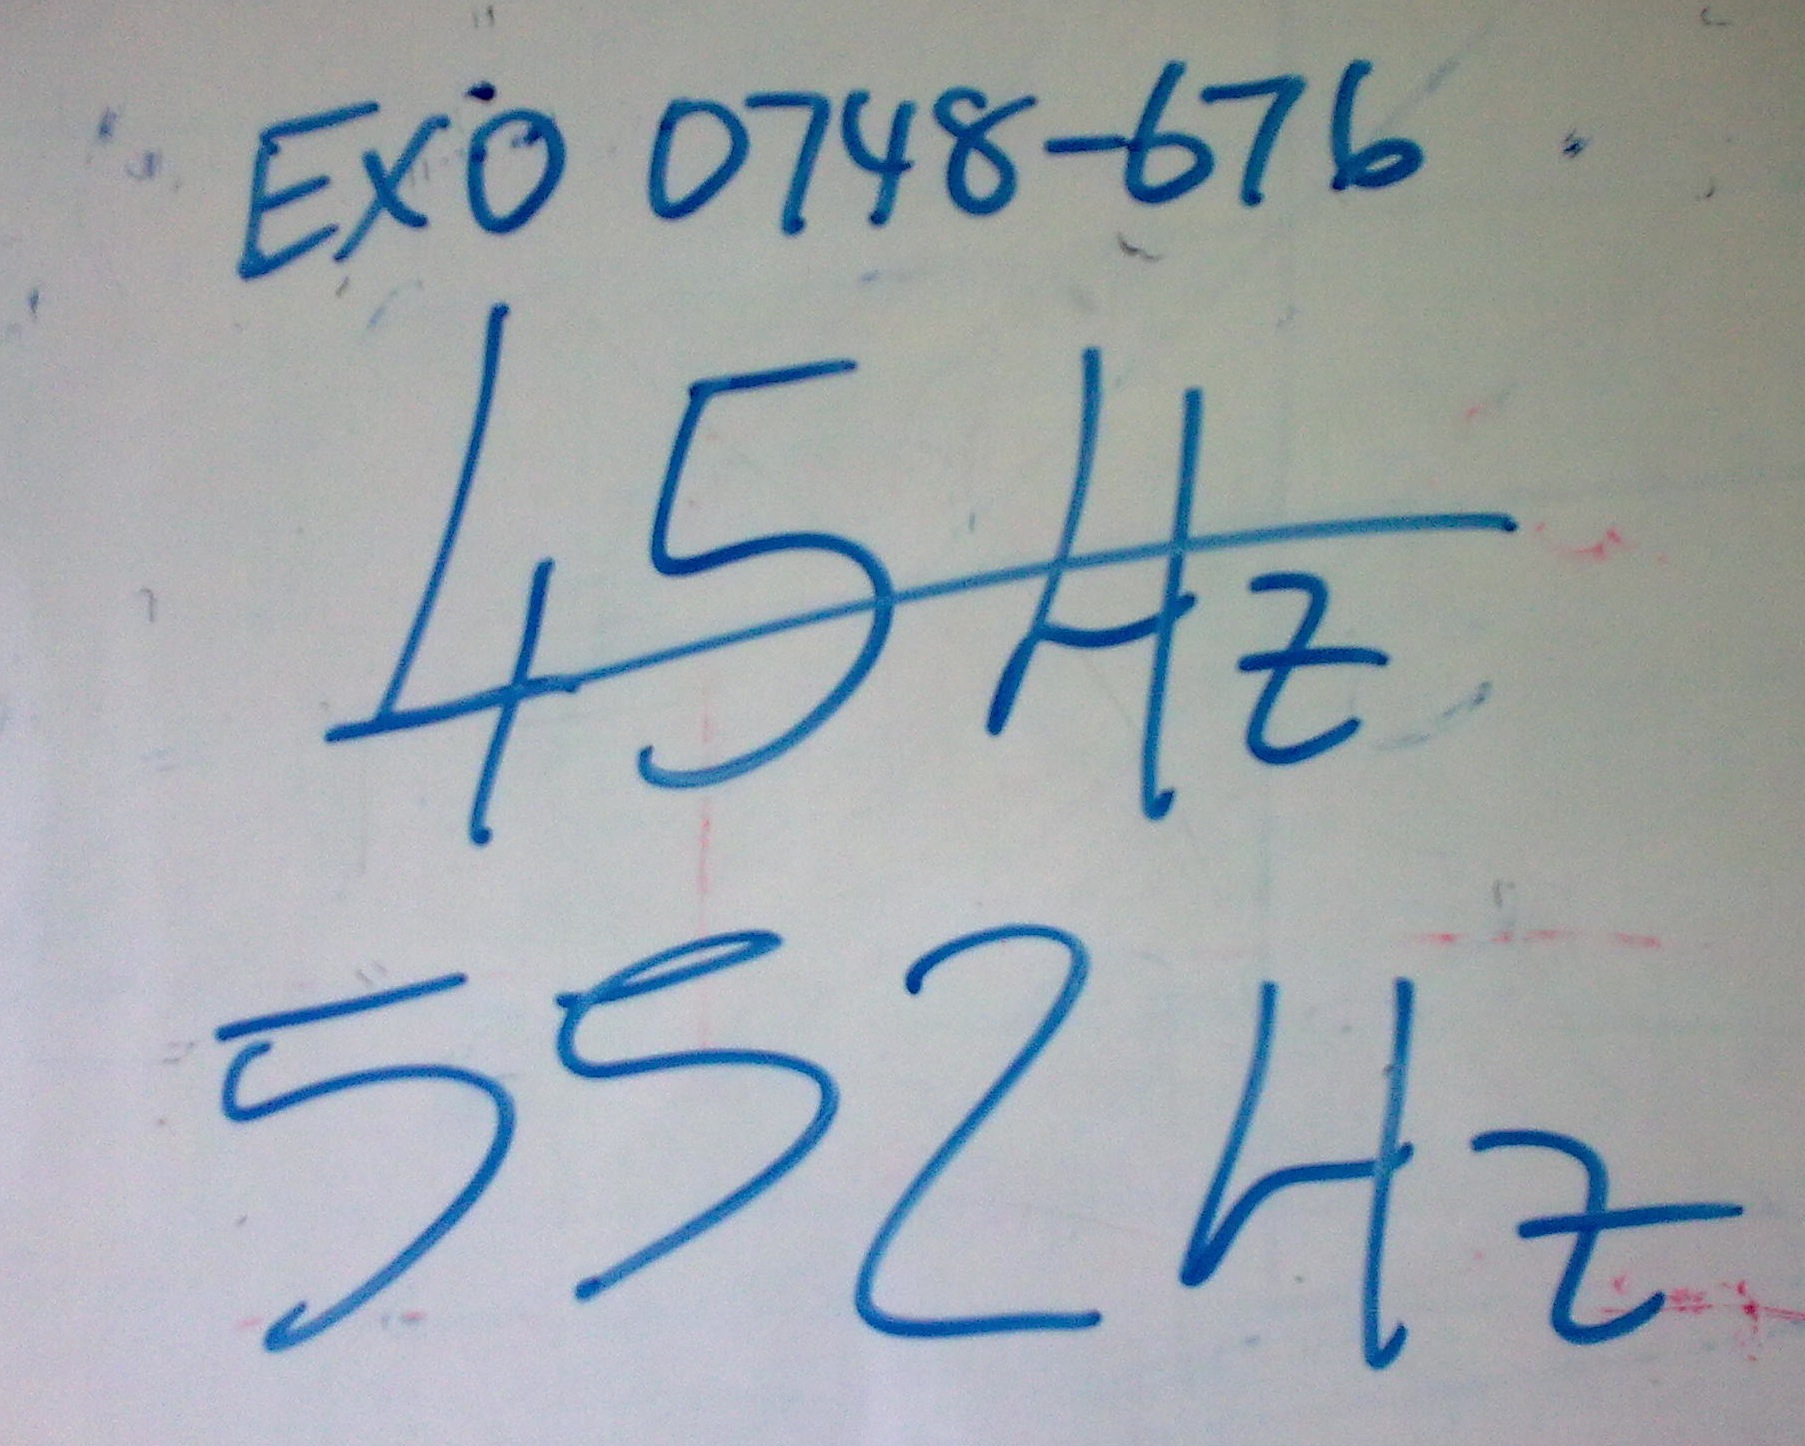 EXO 0748-676
45 Hz
552 Hz